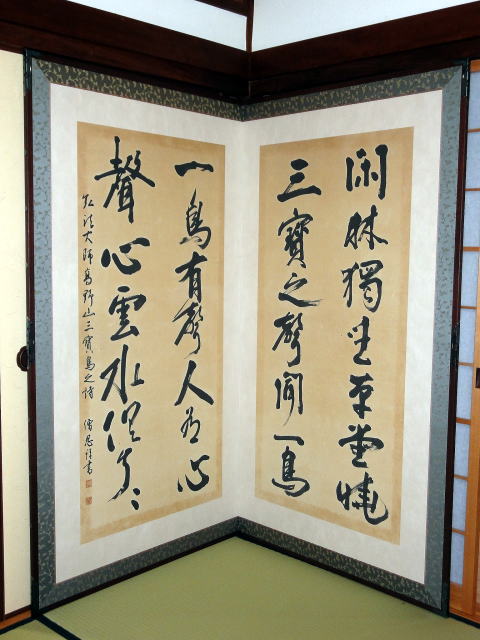 閑林獨坐草堂曉
三寶之聲聞一鳥
一鳥有聲人有心
聲心雲水俱了々
弘法大師高野山三寶鳥之詩 書